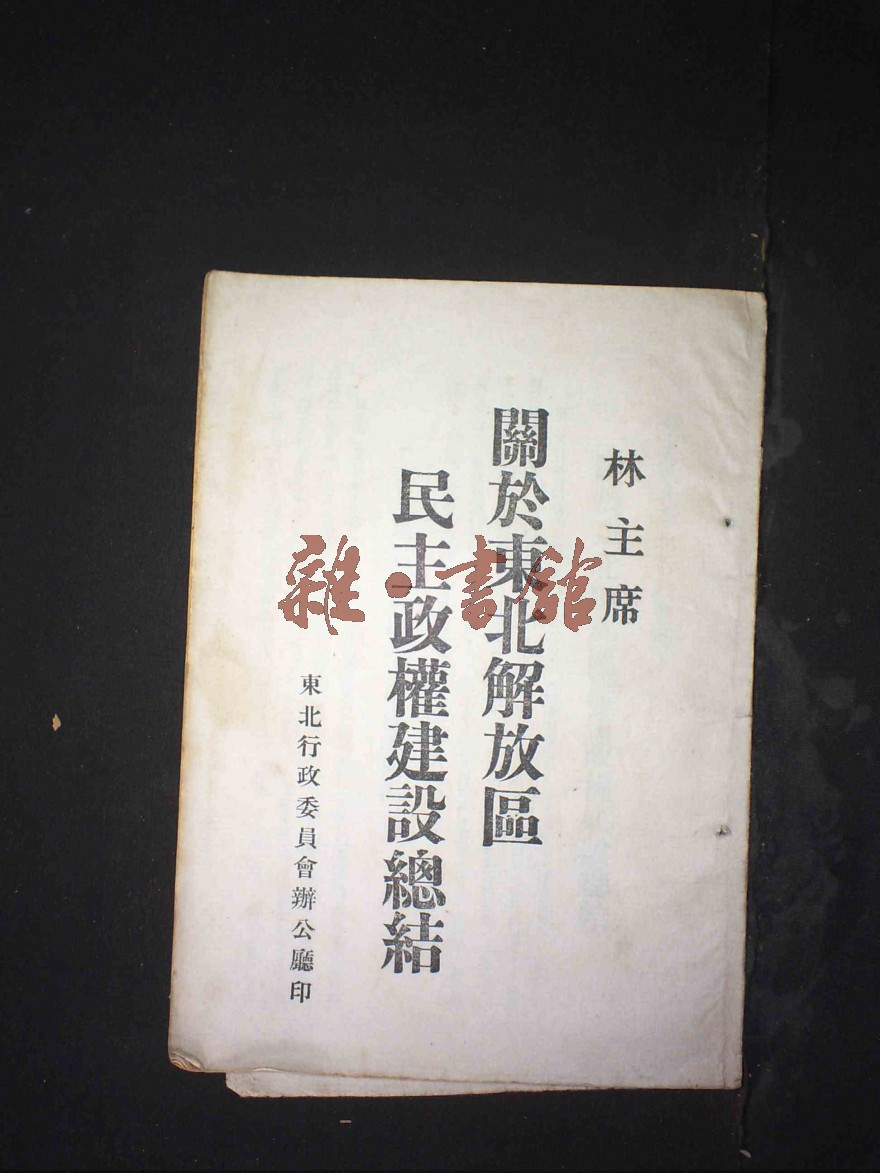 林主席
關於東北解放區
民主政權建設總結
東北行政委員會辦公廳印
雜·書館